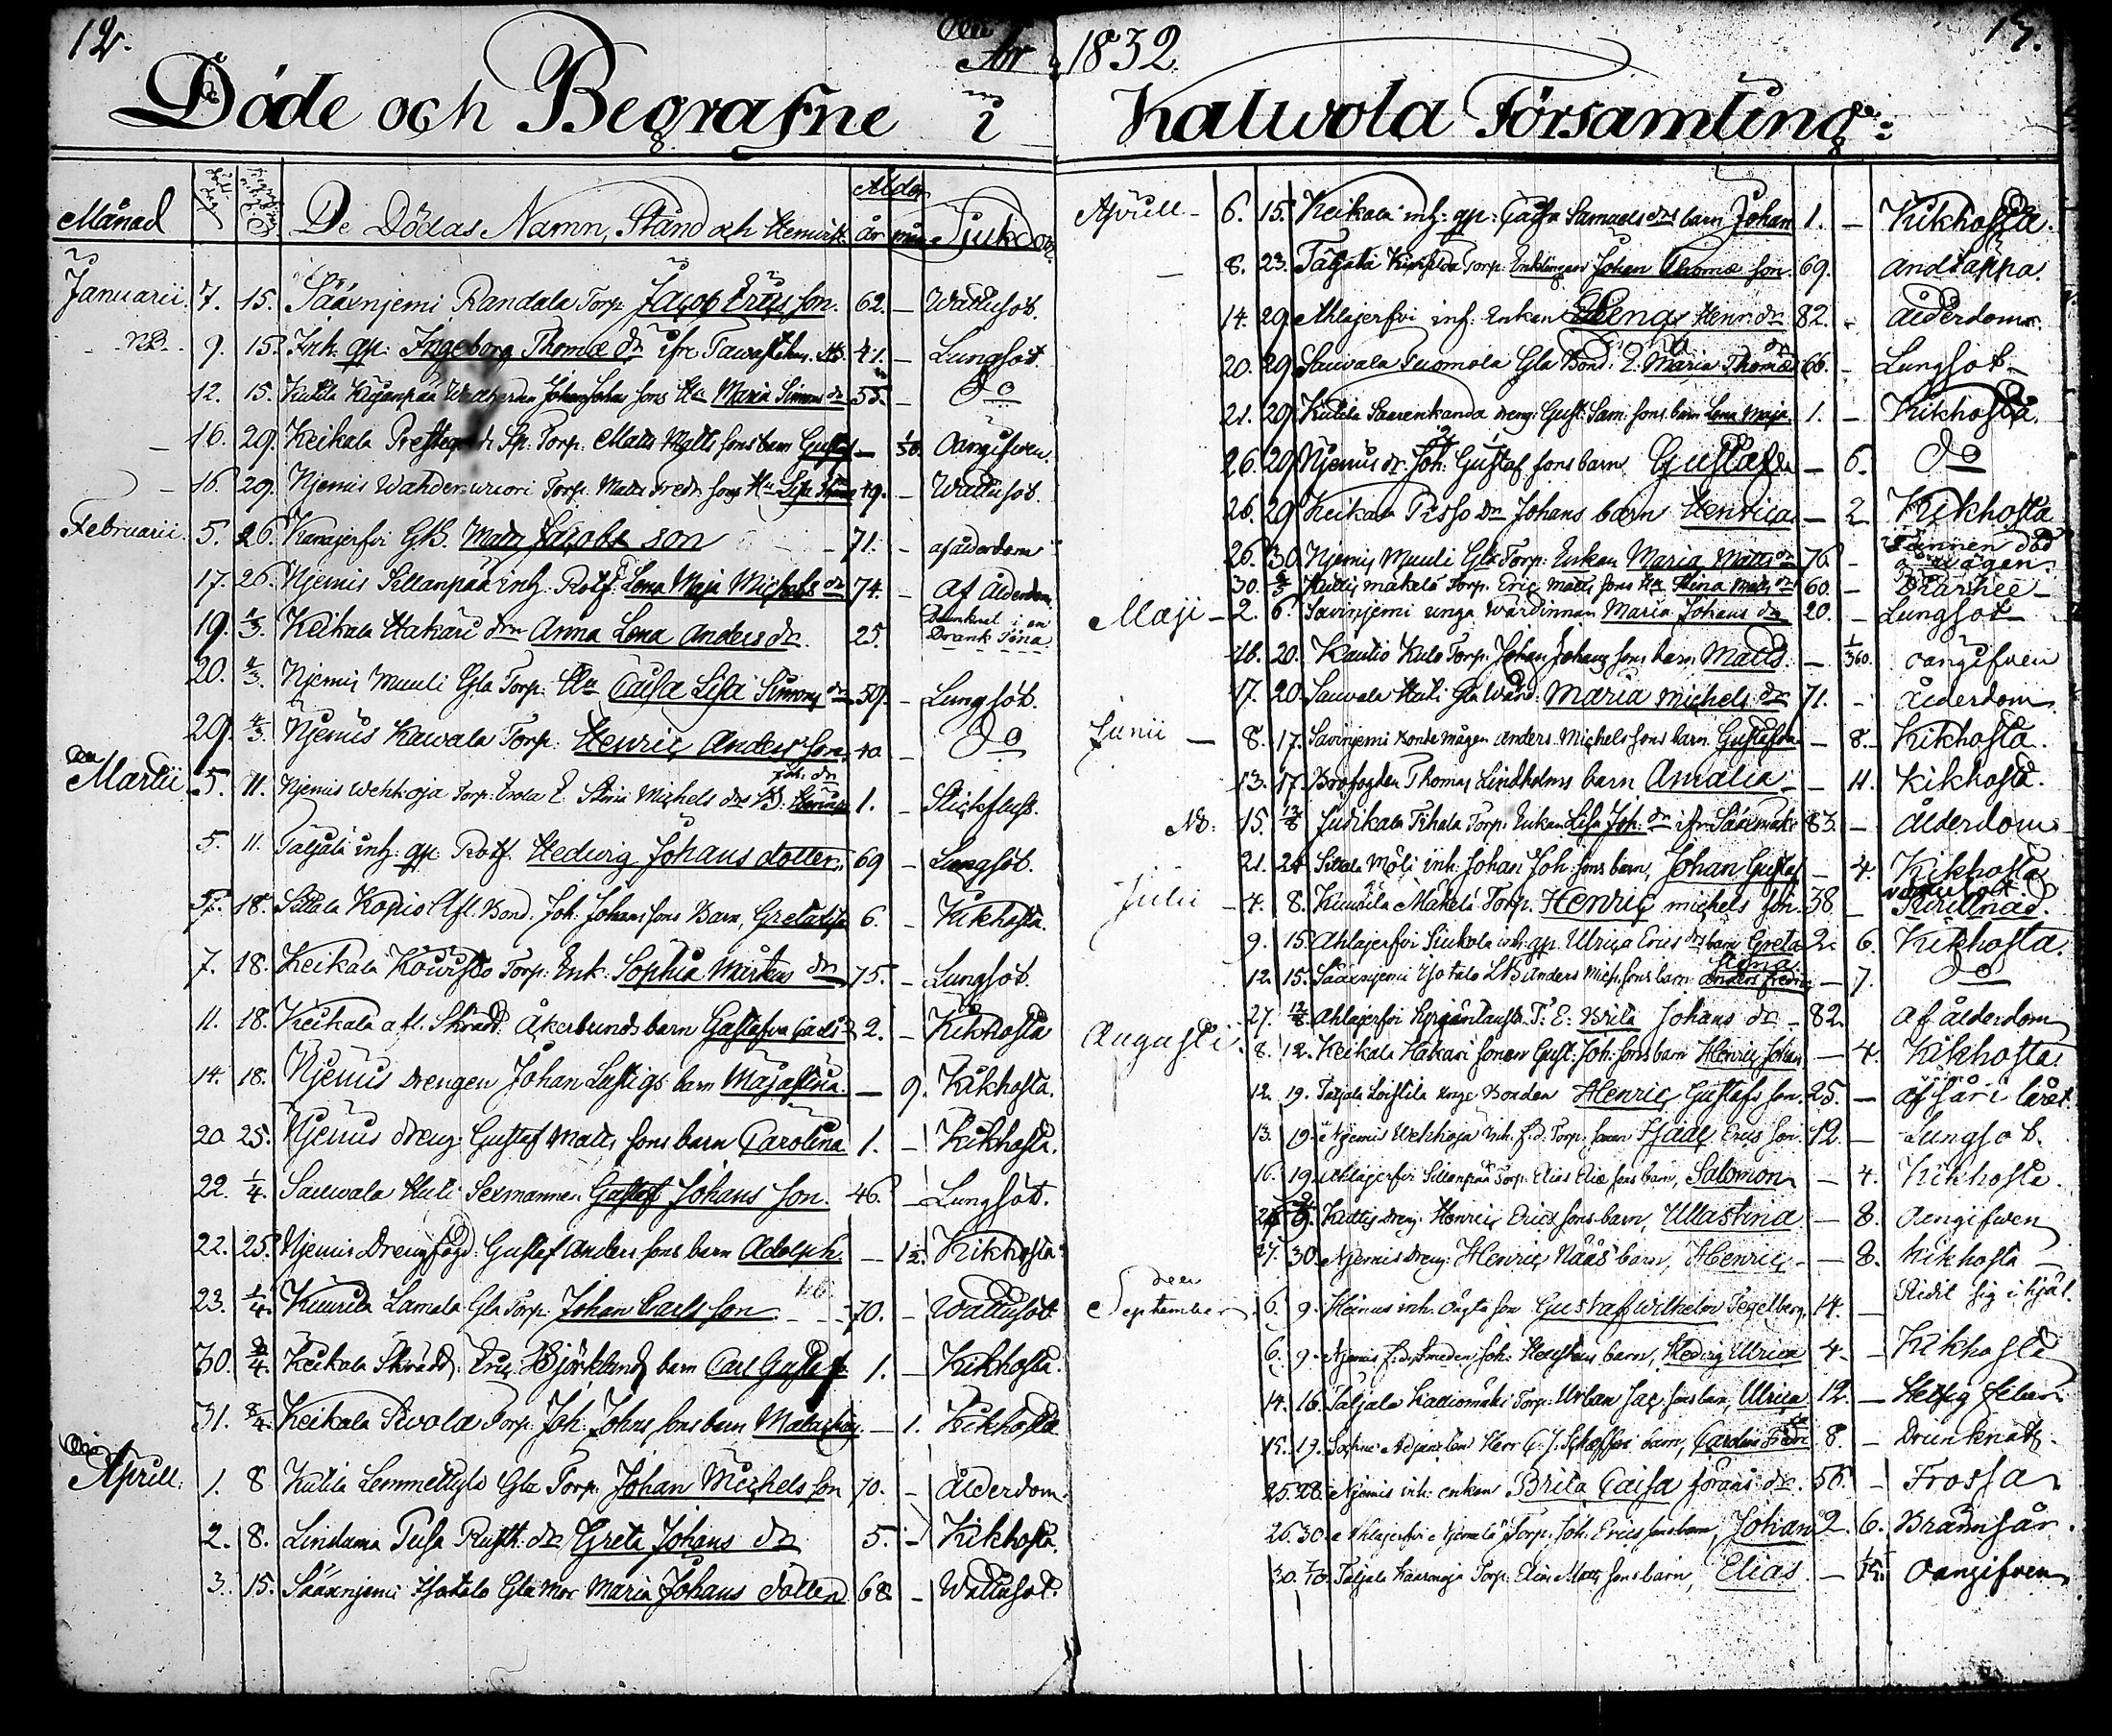 12.
År 1832
13.
Döde och Begrafne i Kalwola Församling:
Månad De Dödas Namn, Stånd och Hemvist. Ålder år mån. Sjukdom
Januarii. 7. 15. Sääxnjemi Randala Torp. Jacob Erics son. 62. - Wattusot.
NB. 9. 15. Inh. gp: Ingeborg Thomæ dr ifrå Tawastehus 41. - Lungsot.
12. 15. Johan Johans sons Hu Maria Simons dr 55. - Do
- 16. 29. Keikala Torp. Matts Matts sons barn Gustaf - Oangifwen.
- 16. 29. Njemis Torp. Matts Fredr. sons Hu Lisa 49. - Wattusot.
Februarii. 5. 26. Kanajerfvi Gb. Matts Jacobs son - 71. - af ålderdom
17. 26. Njemis Sillanpää inh. Rotf. Lena Maja Michels dr 74. - Af Ålderdom
19. 4/3. Keikala Hakari drn Anna Lena Anders dr. 25. Drunknat i en Drank Tina
20. 4/3. Njemis Muuli Gla Torp. Hu Caisa Lisa Simons dr 59. - Lungsot.
29. 4/3. Njemis Kawala Torp. Henric Anders son. 40. - Do
Martii 5. 11. Njemis Wehkoja Torp. Enka E. Stina Michels drs 1. - Stickfluss.
5. 11. Taljala inh. gp. Rotf. Hedwig Johans dotter. 69 - Lungsot.
18. Sittala Kopio Afl. Bond. Joh. Johans sons Barn, Greta Lisa 6. - Kikhosta.
7. 18. Keikala Kouisto Torp. Enk. Sophia Mårtens dr 75. - Lungsot.
11. 18. Keikala afl. Skrädd. Åkerlunds barn Gustafva 2. - Kikhosta
14. 18. Njemis Drengen Johan Lustigs barn Majastina. - 9. Kikhosta.
20. 25. Njemis dreng. Gustaf Matts sons barn Carolina 1. - Kikhosta.
22. 1/4. Sauwala Huli Sexmannen Gustaf Johans son. 46. - Lungsot.
22. 25. Njemis Drengfogd. Gustaf Anders sons barn Adolph. - 1½. Kikhosta
23. 1/4. Kuurila Lamala Gla Torp. Johan Carls son 70. - Wattusot
30. 8/4. Keikala Skrädd. Eric Björklunds barn Carl Gustaf 1. - Kikhosta.
31. 8/4. Keikala Torp. Joh. Johns sons barn - 1. Kikhosta
Aprill. 1. 8 Kutila Lemmettylä Gla Torp. Johan Michels son 70. - Ålderdom.
2. 8. Lindama Pusa Rusth. dr Greta Johans dr 5. - Kikhosta.
3. 15. Sääxnjemi Isotalo Gla Mor Maria Johans Dotter 68. - Wattusot.
Aprill - 6. 15. Keikala inh. gp. Caisa Samuels drs barn Johan 1. - Kikhosta.
- 8. 23. Taljala Torp. Enklingen Johan Thomæ son. 69. Andtäppa.
14. 29. Ahlajerfvi inh. Enkan Lena Henr. dr 82. - Ålderdom.
20. 29. Sauvala Tuomola Gla Bond. E. Maria Thomæ dr 66. - Lungsot
21. 29. Kutila Saarenkanda dreng: Gust. Sam. sons barn Lena Maja 1. - Kikhosta.
26. 29. Njemis dr. Joh. Gustaf sons barn Gustafva - 6. Do
26. 29 Keikala Pisso dr Johans barn Henrica - 2 Kikhosta
26. 30. Njemis Muuli Gla Torp. Enkan Maria Matts dr 76 - Funnen död å wägen.
30. Kuttis mäkelä Torp. Eric Matts sons Hu Stina Matts dr 60. - Diarrhee -
Maji - 2. 6. Savinjemi unga wärdinnan Maria Johans dr 20. - Lungsot
16. 20. Kautio Kulo Torp. Johan Johans sons barn Matts. - 1/360. Oangifven
17. 20. Sauvala Huli Gla Wärd. Maria Michels dr 71. - Ålderdom
Junii - 8. 17. Savinjemi Bondemågen Anders Michels sons barn Gustafva - 8. Kikhosta.
13. 17. Brofogden Thomas Lindholms barn Amalia - 11. Kikhosta.
NB. 15. Judikala Tihala Torp. Enkan Lisa Joh. dr ifr. Sääxmäki 83. - Ålderdom
21. 24 Sittala Möli inh. Johan Joh. sons barn, Johan Gustaf - 4. Kikhosta
Julii 4. 8. Kuurila Mäkelä Torp. Henric Michels son. 38. -
9. 15. Ahlajerfvi inh. gp. Ulrica Erics drs barn Greta 2. 6. Kikhosta.
12. 15. Sääxnjemi Isotalo Anders Mich. sons barn Anders Fredric - 7. Do
27. 12/8. Ahlajerfvi T. E. Brita Johans dr 82. Af ålderdom
Augusti. 8. 12. Keikala Hakari sonen Gust. Joh. sons barn Henric Johan - 4. Kikhosta.
12. 19. Taljala unge Bonden Henric Gustafs son. 25. - af sår i låret
13. 19. Njemis Wehkoja inh. f.d. Torp. sonen Isaac Erics son 12. - Lungsot.
16. 19. Ahlajerfvi Sillanpää Torp. Elias Eliæ sons barn, Salomon - 4. Kikhosta.
Kuttis dreng. Henric Erics sons barn, Ullastina - 8. Oangifwen
27. 30. Njemis Dreng: Henric Nääs barn, Henric - 8. Kikhosta
September 6. 9. Heinus inh. Gustaf Wilhelm Tegelberg, 14. - Ridit sig i hjäl.
6. 9. Njemis barn, Hedvig Ulrica 4. - Kikhosta
14. 16. Taljala Torp. Urban Jac. sons barn, Ulrica 12. - Hetsig feber
15. 19. Herr C. J. barn, 8. - Drunknat.
25. 28. Njemis inh. enkan Brita Caisa Jörans dr. 56. - Frossa
26. 30. Ahlajerfvi Torp. Joh. Erics sons barn, Johan 2. 6. Brännsår.
30. 7/10. Taljala Torp. Matts sons barn, Elias. - Oangifven